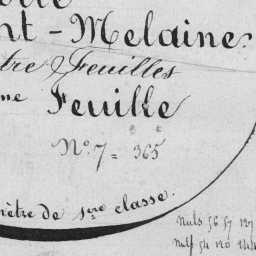 nt-Melaine.
tre Feuilles
me Feuille
N°. 7 = 365
mètre de 1ère classe.
Nuls 56 57 127
Nulf 54 120 144